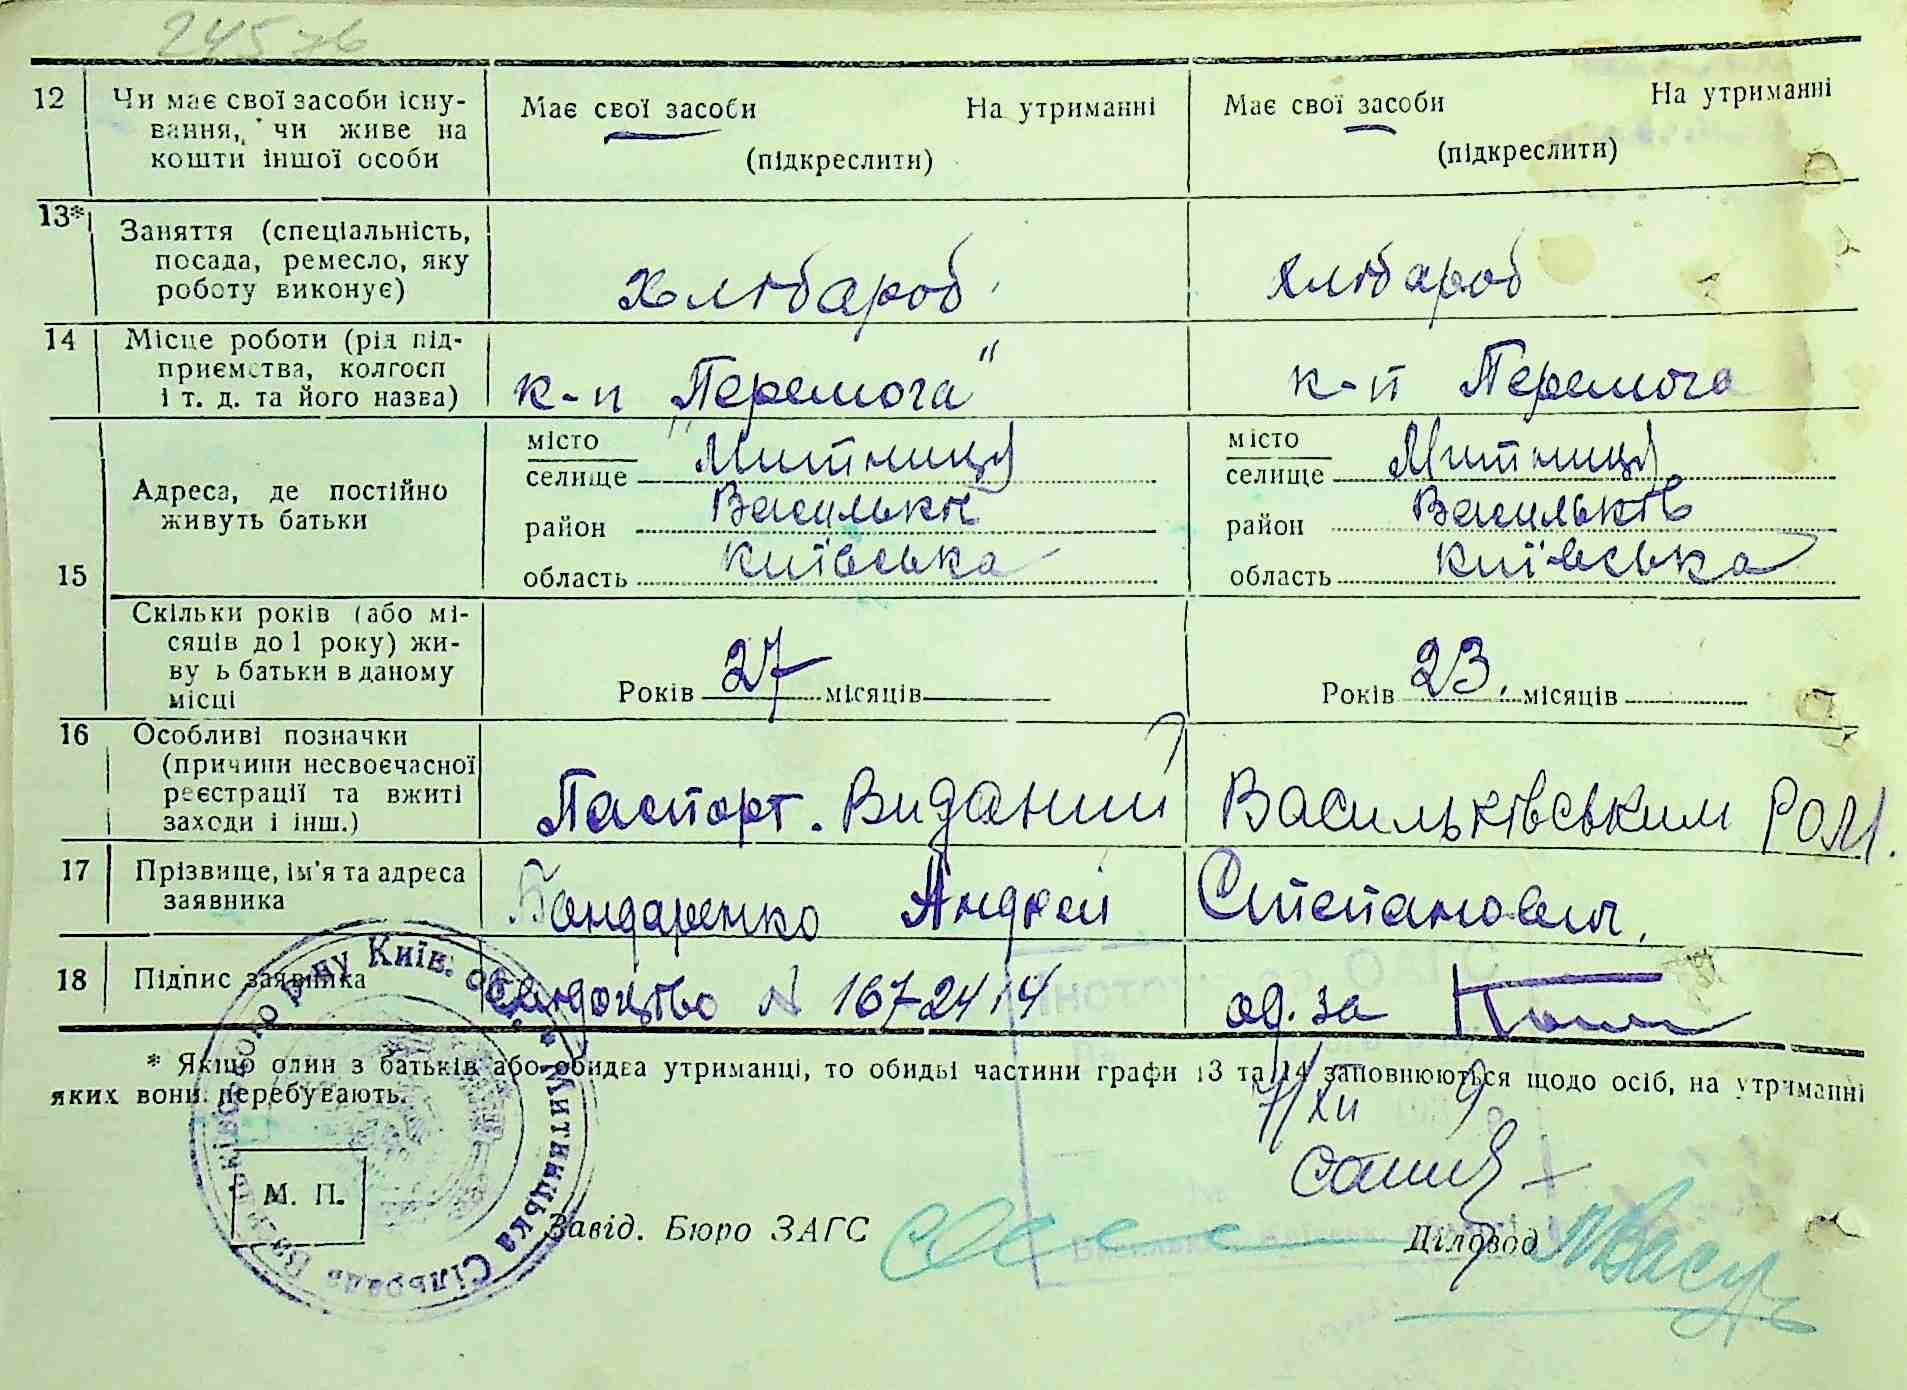 245
12 Чи має свої засоби існу-
вання, чи живе на
кошти іншої особи
Має свої засоби На утриманні
(підкреслити)
Має свої засоби На утриманні
(підкреслити)
13* Заняття (спеціальність,
посада, ремесло, яку
роботу виконує)
хлібароб
хлібароб
14 Місце роботи (рід під-
приємства, колгосп
і т. д. та його назва)
к-п „Перемога"
к-п Перемога
15 Адреса, де постійно
живуть батьки
місто
селище Митниця
район Васильків
область київська
місто
селище Митниця
район Васильків
область київська
Скільки років (або мі-
сяців до 1 року) жи-
ву ь батьки в даному
місці
Років 27 місяців
Років 23. місяців
16 Особливі позначки
(причини несвоєчасної
реєстрації та вжиті
заходи і інш.)
Паспорт. Виданий Васильківським РОМ.
17 Прізвище, ім'я та адреса
заявника
Бондаренко Андрей Степанович,
18 Підпис заявника
Свидоцтво N 1672414 од. за
* Якщо один з батьків або обидва утриманці, то обидві частини графи 13 та 14 заповнюються щодо осіб, на утриманні
яких вони перебувають.
7/XII
М. П.
Завід. Бюро ЗАГС
Діловод
Митницька Сільрада Васильківського р-ну Київ. обл.